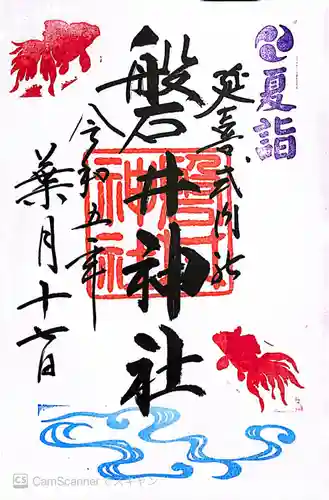 夏詣
延喜式内社
磐井神社
令和五年
葉月十七日
磐井
神社
CS CamScanner でスキャン